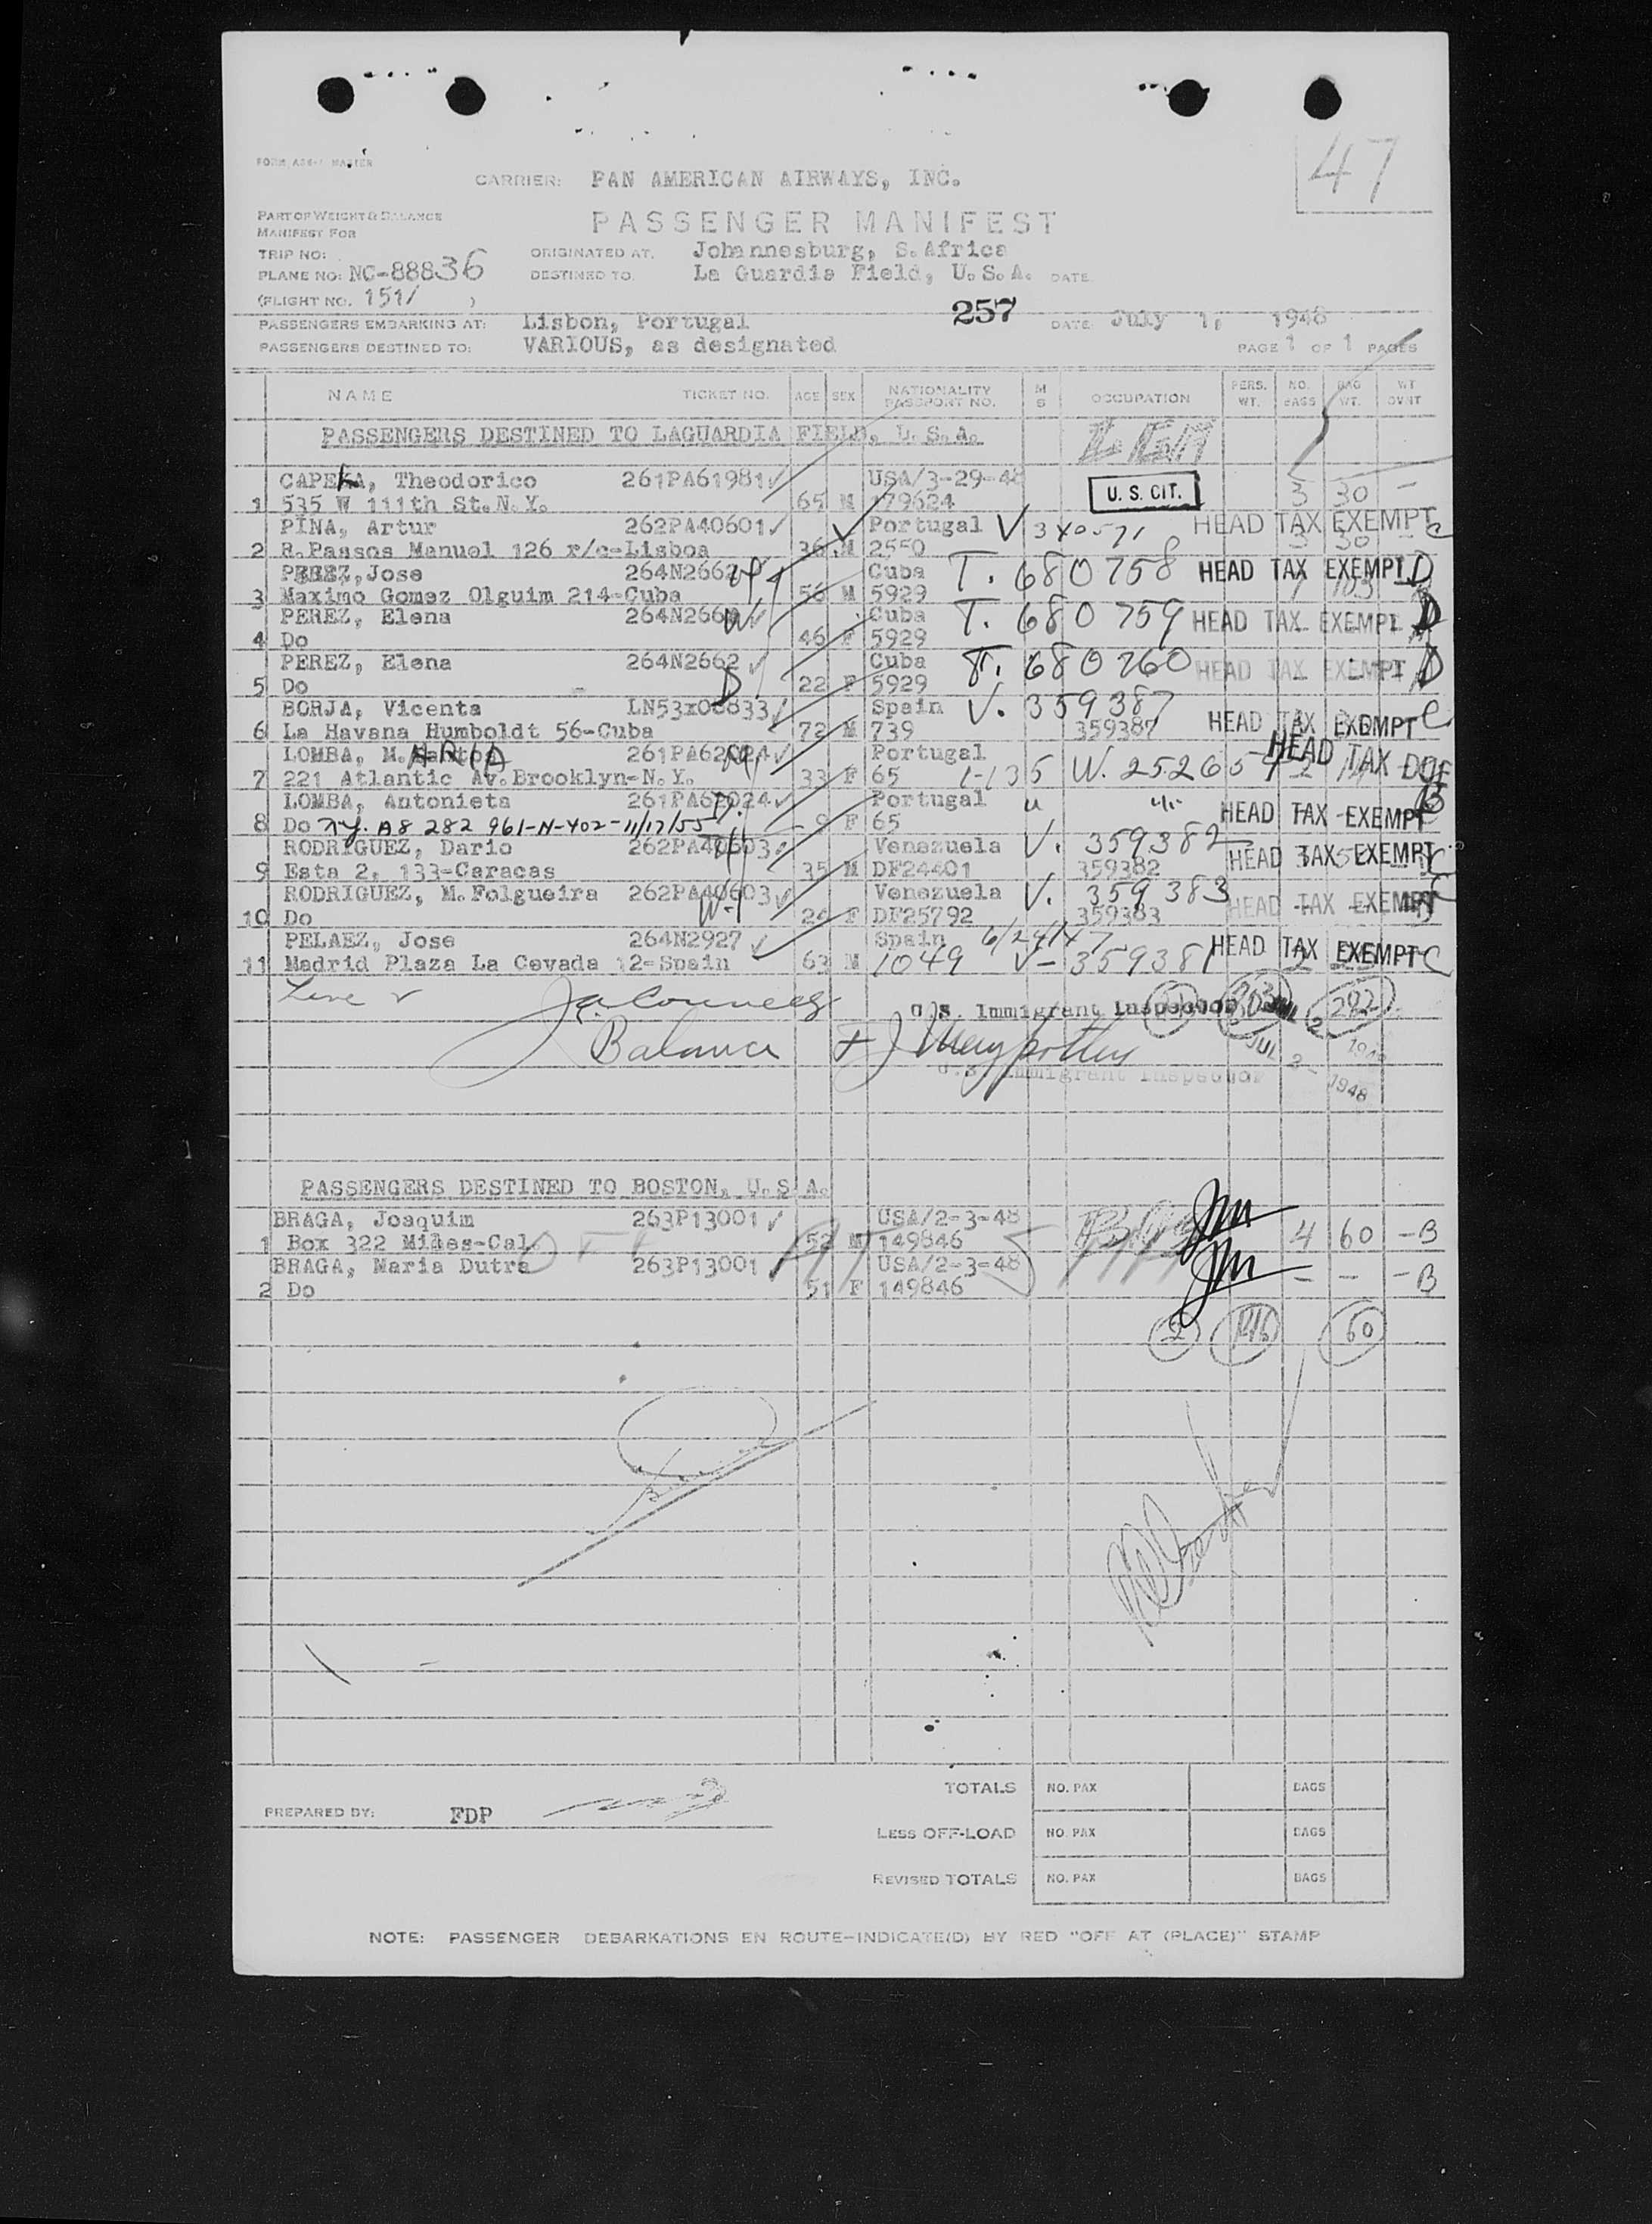 47
CARRIER: PAN AMERICAN AIRWAYS, INC.
PART OF WEIGHT & BALANCE
MANIFEST FOR
PASSENGER MANIFEST
TRIP NO: ORIGINATED AT. Johannesburg, S. Africa
PLANE NO: NC-88836 DESTINED TO. La Guardia Field, U. S. A. DATE
(FLIGHT NO. 151/ )
PASSENGERS EMBARKING AT: Lisbon, Portugal 257 DATE July 1, 1948
PASSENGERS DESTINED TO: VARIOUS, as designated PAGE 1 OF 1 PAGES
NAME TICKET NO. AGE SEX NATIONALITY PASSPORT NO. M S OCCUPATION PERS. WT. NO. BAGS BAG WT. WT OVNT
PASSENGERS DESTINED TO LAGUARDIA FIELD, U. S. A.
CAPEKA, Theodorico 261PA61981 USA/3-29-48 U. S. CIT. 3 30 -
1 535 W 111th St. N. Y. 65 M 179624
PINA, Artur 262PA40601 Portugal V 340571 HEAD TAX EXEMPT C
2 R. Passos Manuel 126 r/c-Lisboa 36 M 2550 3 30
PEREZ, Jose 264N2662 Cuba T. 680758 HEAD TAX EXEMPT D
3 Maximo Gomez Olguim 214-Cuba 56 M 5929
PEREZ, Elena 264N2662 Cuba T. 680759 HEAD TAX EXEMPT D
4 Do 46 F 5929
PEREZ, Elena 264N2662 Cuba T. 680760 HEAD TAX EXEMPT D
5 Do 22 F 5929
BORJA, Vicenta LN53x00833 Spain V. 359387 HEAD TAX EXEMPT C
6 La Havana Humboldt 56-Cuba 72 M 739 359387
LOMBA, M. ARIA 261PA62024 Portugal HEAD TAX DUE
7 221 Atlantic Av. Brooklyn-N. Y. 33 F 65
LOMBA, Antonieta 261PA62024 Portugal HEAD TAX EXEMPT B
8 Do NY. A8 282 961-N-402-11/17/55 9 F 65
RODRIGUEZ, Dario 262PA40603 Venezuela V. 359382 HEAD TAX EXEMPT C
9 Esta 2, 133-Caracas 35 M DF24401 359382
RODRIGUEZ, M. Folgueira 262PA40603 Venezuela V. 359383 HEAD TAX EXEMPT C
10 Do 24 F DF25792 359383
PELAEZ, Jose 264N2927 Spain 6/24/47 HEAD TAX EXEMPT C
11 Madrid Plaza La Cevada 12-Spain 63 M 1049 V-359381
U. S. Immigrant Inspector 292
Balance
JUL 2 - 1948
U. S. Immigrant Inspector
PASSENGERS DESTINED TO BOSTON, U. S. A.
BRAGA, Joaquim 263P13001 USA/2-3-48 4 60 -B
1 Box 322 Miles-Cal. 52 M 149846
BRAGA, Maria Dutra 263P13001 USA/2-3-48 - - -B
2 Do 51 F 149846
2 60
TOTALS NO. PAX BAGS
PREPARED BY: FDP
LESS OFF-LOAD NO. PAX BAGS
REVISED TOTALS NO. PAX BAGS
NOTE: PASSENGER DEBARKATIONS EN ROUTE-INDICATE(D) BY RED "OFF AT (PLACE)" STAMP